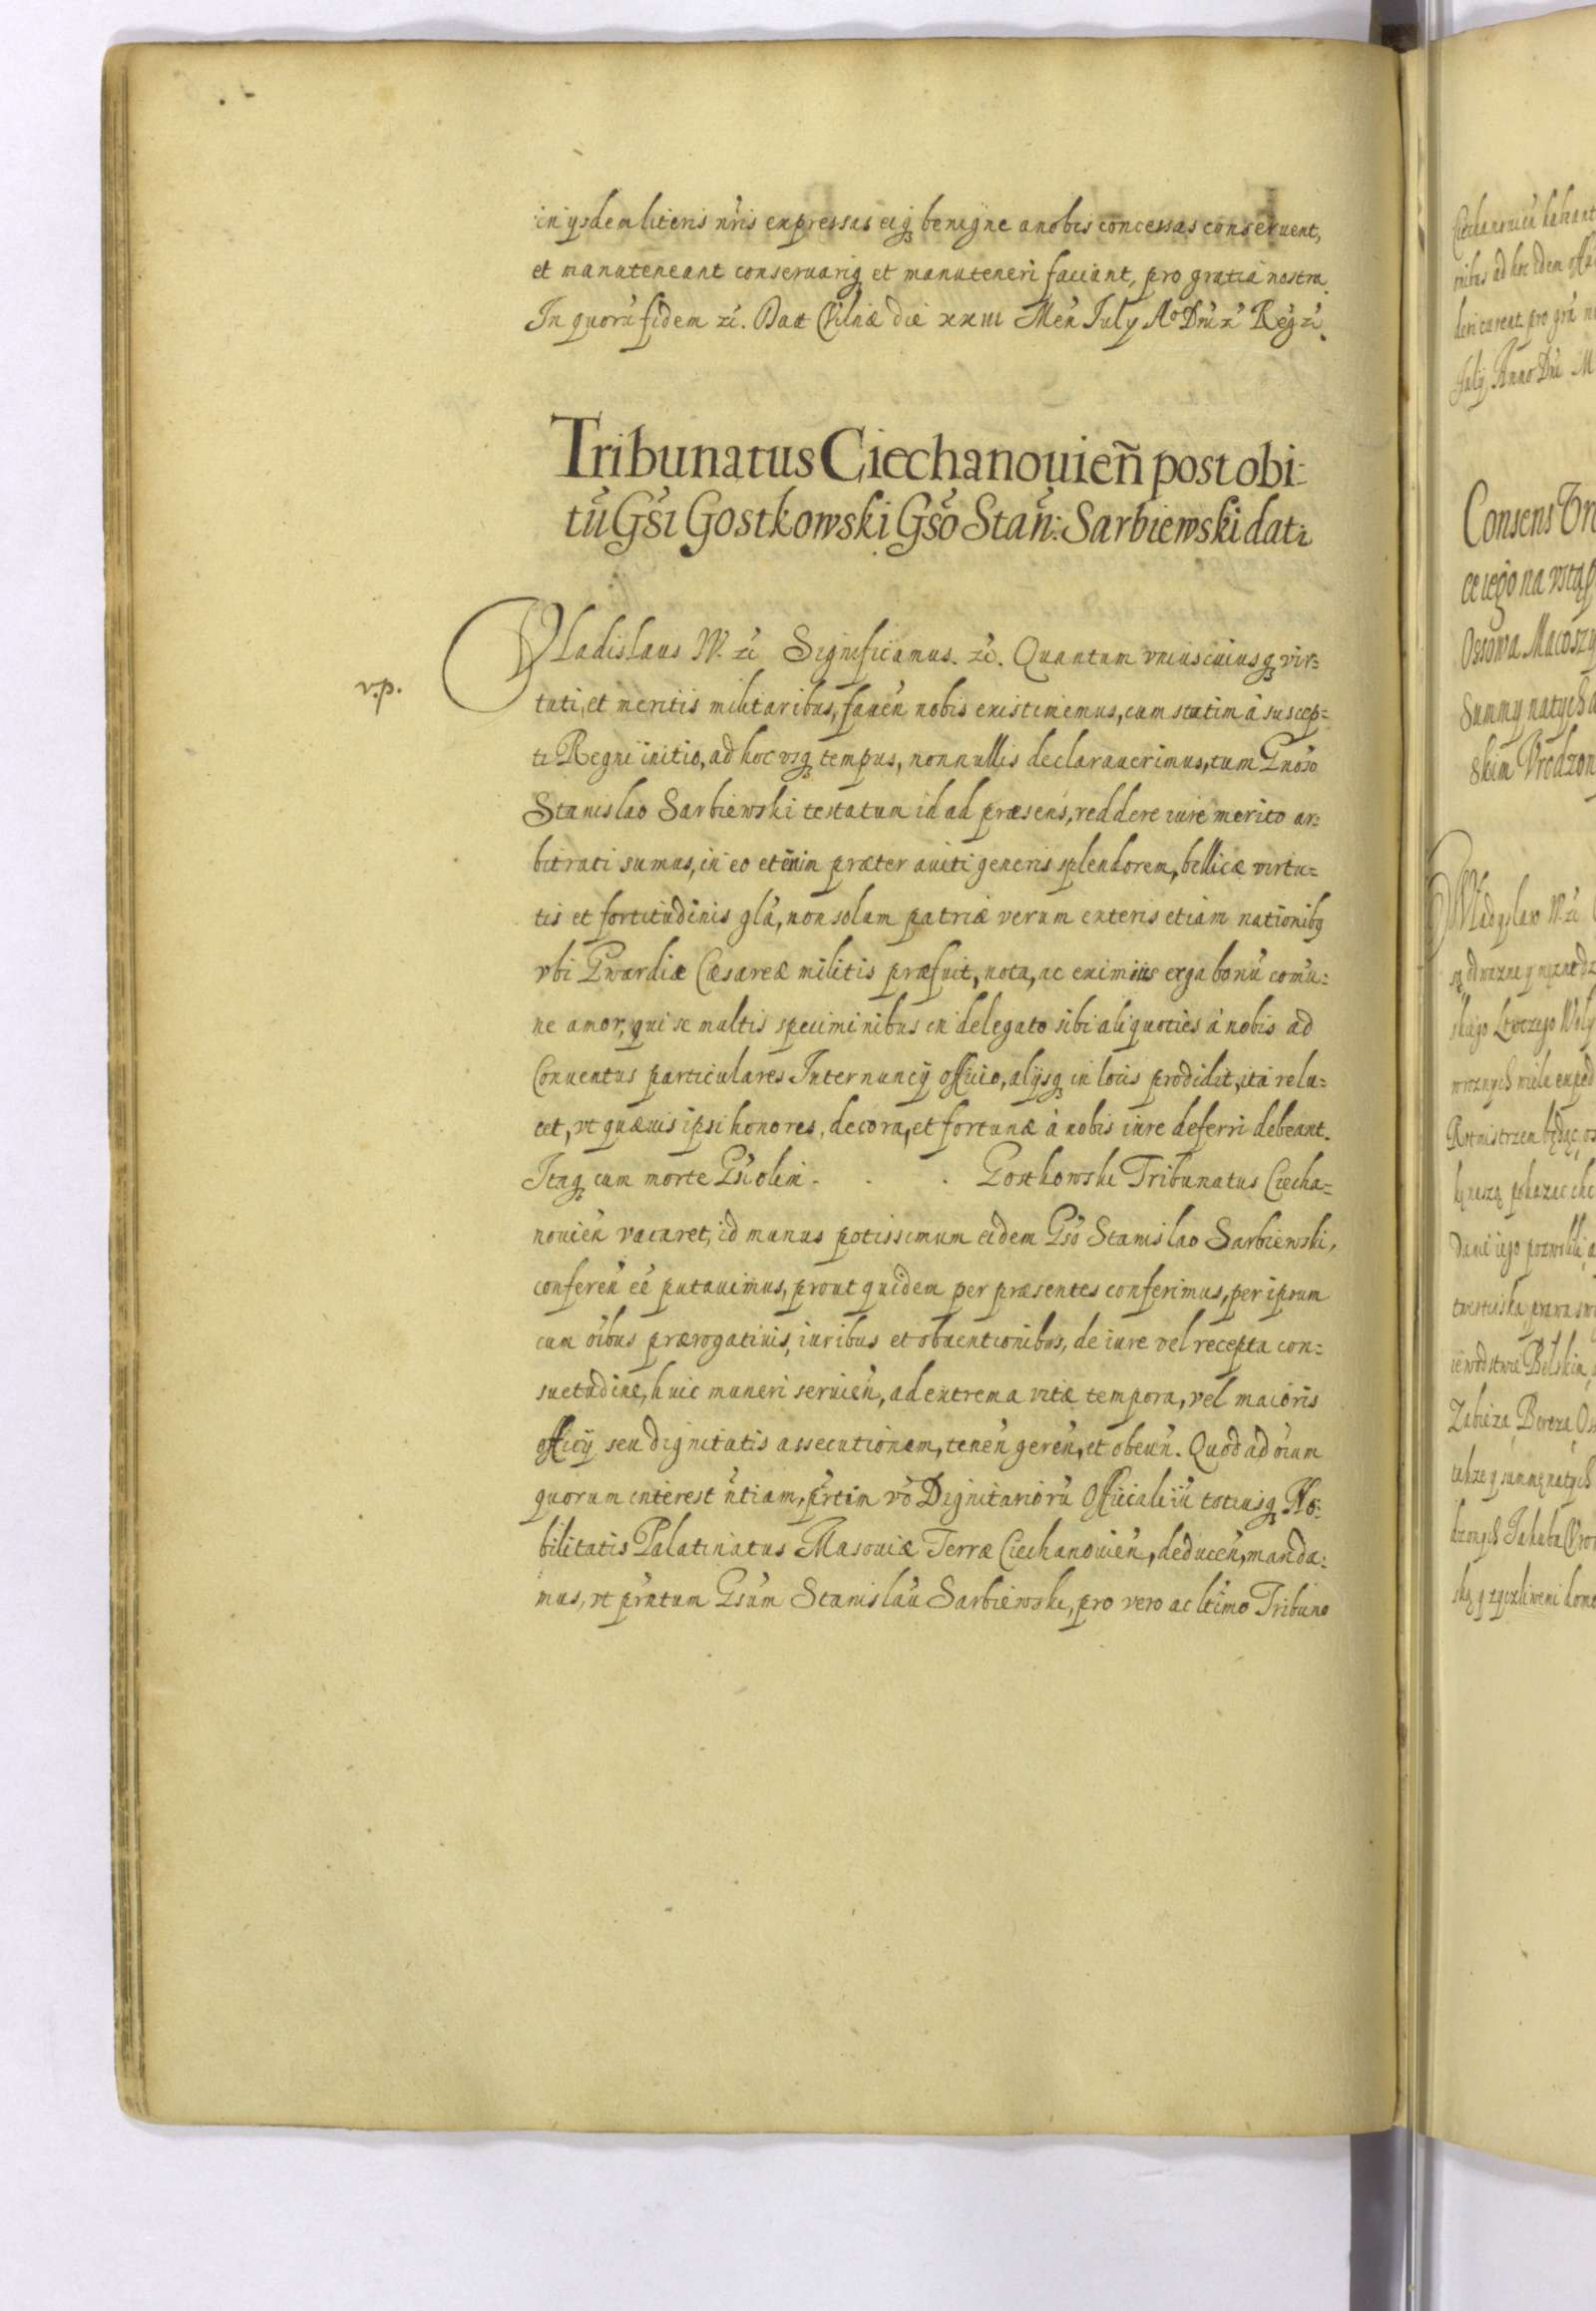 in ijsdem literis nr̃is expressas eiq3 benigne a nobis concessas conseruent,
et manuteneant conseruariq3 et manuteneri faciant, pro gratia nostra.
In quorũ fidem zc̃. Dat Vilnæ die xxiii Meñ July Ao Dñi zc̃ Reg̃ zc̃.
Tribunatus Ciechanouieñ post obi-
tũ Gs̃i Gostkowski Gs̃o Stañ: Sarbiewski dat₂
v.p.
Vladislaus IV. zc̃ Significamus. zc̃. Quantum vniuscuiusq3 vir=
tuti, et meritis militaribus, faueñ nobis existimemus, cum statim à suscep=
ti Regni initio, ad hoc vsq3 tempus, nonnullis declarauerimus, tum Gnoso
Stanislao Sarbiewski testatum id ad præsens, reddere iure merito ar=
bitrati sumus, in eo etenim præter auiti generis splendorem, bellicæ virtu=
tis et fortitudinis glã, non solum patriæ verum exteris etiam nationibq3
vbi Gwardiæ Cæsareæ militis præfuit, nota, ac eximius erga bonũ com̃u=
ne amor, qui se multis speciminibus in delegato sibi aliquoties à nobis ad
Conuentus particulares Internuncÿ officio, alÿsq3 in locis prodidit, ita relu=
cet, vt quæuis ipsi honores, decora, et fortunæ à nobis iure deferri debeant.
Itaq3 cum morte Gs̃i olim . . . Gostkowski Tribunatus Ciecha=
nouieñ vacaret, id munus potissimum eidem Gs̃o Stanislao Sarbiewski,
confereñ eẽ putauimus, prout quidem per præsentes conferimus, per ipsum
cum oĩbus prærogatiuis, iuribus et obuentionibus, de iure vel recepta con=
suetudine, huic muneri seruieñ, ad extrema vitæ tempora, vel maioris
officÿ seu dignitatis assecutionem, teneñ gereñ, et obeuñ. Quod ad oĩum
quorum interest ñtiam, p̃rtim võ Dignitariorũ Officialiũ totiusq3 No=
bilitatis Palatinatus Masouiæ Terræ Ciechanouieñ, deduceñ, manda=
mus, vt p̃rntum Gsũm Stanislaũ Sarbiewski, pro vero ac ltĩmo Tribuno